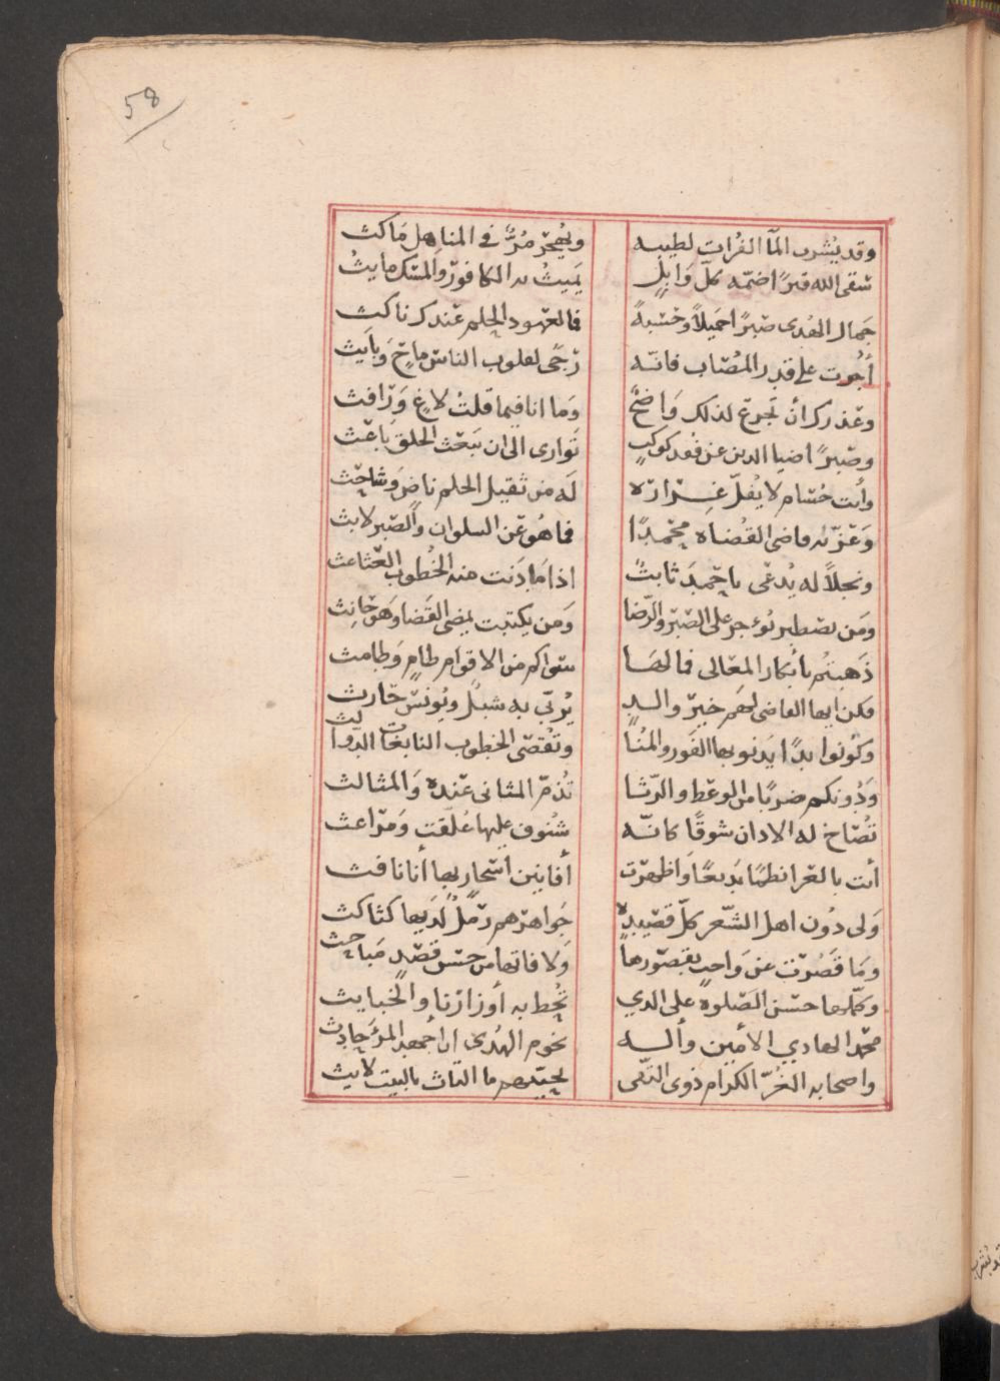 58
وقد يُشرب المآ الفُرات لطيبه ويُهجَر مُرٌّ في المناهل مَاكث
سَقى الله قبرًا ضمّه كلّ وَابلٍ يَميثُ به الكافورُ والمسك مايثُ
جَمال الهُدى صَبرًا جَميلًا وخشيةً فما لعهود الحلم عندك ناكث
أُجرت على قدر المُصَاب فانّه رَحًى لقلوب الناس ماحٍ وَبايث
وعَذرك أن تجزع لذلك وَاضحٌ وَما انا فيما قلتُ لاغٍ وَرَافث
وصَبرًا ضيا الدين عن فقد كوكبٍ تَوارى الى ان يَبعَث الخلق بَاعَث
وأنت حُسَام لا يُفلّ غِرَاره لَه من ثقيل الحلم ناضٍ وَشاحث
وَعَزّ به قاضى القُضاه محَمدًا فما هُو عَن السلوان والصَبر لابث
ونجلًا له يُدعى باحمدَ ثابثٌ اذا مَا دَنت منه الخُطوب العَثاعث
ومَن يصَطبر يُوجر على الصَبر والرّضا وَمَن يكتبت يمضى القَضا وَهو حَانث
ذَهبتُم بأبكار المعَالى فما لهَا سواكم من الاقوام طامٍ وَطامث
فكن ايها القاضى لهم خيرَ والدٍ يُربّى به شبلٌ ويُونسَ حَارث
وكونوا يدًا يَدنو بها الفَوز والمُنا وتُقصَى الخطوب النابغات الدّوالث
وَدُونكم ضربًا من الوعَظ والرّثا تُذمّ المثانى عَنده وَالمثالث
تُصَاخ له الاذان شوقًا كانّه شُنوف عليها عُلّقت وَمَرَاعث
أتت بالغَرا نظمًا بَديعًا وَاظهرَت أفانين اسَحار بها أنا نافث
وَلى دُون اهل الشّعر كلّ قصَيدةٍ جَواهرَهم رَملٌ لدَيها كثاكث
ومَا قَصُرَت عَن وَاجبٍ بقصَورها وَلا فاتها من حسَن قصَدٍ مَباحث
وكمّلها حسَن الصَلوة على الذي تُحَط به أوزارَنا والخبايث
محمّد الهادي الأمين وأله نجوم الهُدى ان أجهد المرؤ حَادث
واصحابه الغُرّ الكرام ذوى التقى بحبّهم ما التاث بالبيت لايث